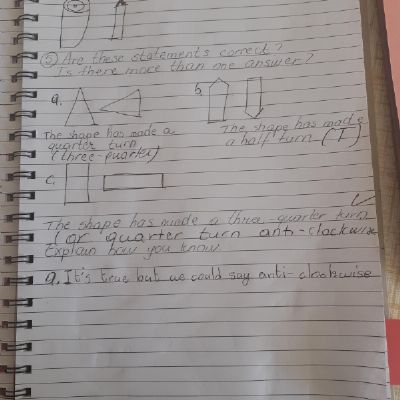 ⑤ Are these statements correct?
Is there more than one answer?
a.
b.
The shape has made a
quarter turn
(three-quarter)
The shape has made
a half turn (T)
c.
The shape has made a three-quarter turn
(or quarter turn anti-clockwise
Explain how you know.
a. It's true but we could say anti-clockwise